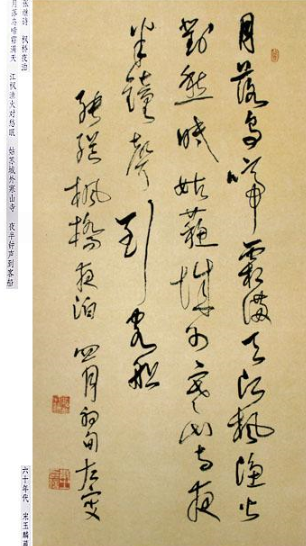 月落烏啼霜滿天江楓漁火
對愁眠姑蘇城外寒山寺夜
半鐘聲到客船
張繼楓橋夜泊 四月初旬
张继诗 枫桥夜泊
月落乌啼霜满天 江枫渔火对愁眠 姑苏城外寒山寺 夜半钟声到客船
六十年代 宋玉麟藏